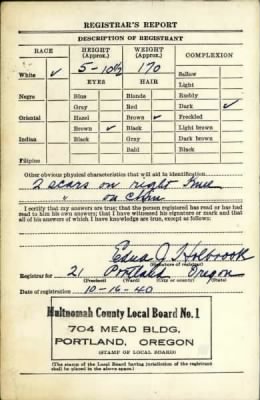 REGISTRAR'S REPORT
DESCRIPTION OF REGISTRANT
RACE HEIGHT (Approx.) WEIGHT (Approx.) COMPLEXION
White ✓ 5-10½ 170 Sallow
EYES HAIR Light
Negro Blue Blonde Ruddy
Gray Red Dark ✓
Oriental Hazel Brown ✓ Freckled
Brown ✓ Black Light brown
Indian Black Gray Dark brown
Bald Black
Filipino
Other obvious physical characteristics that will aid in identification
2 scars on right knee
" on chin
I certify that my answers are true; that the person registered has read or has had
read to him his own answers; that I have witnessed his signature or mark and that
all of his answers of which I have knowledge are true, except as follows:
Edna J. Holbrook
(Signature of registrar)
Registrar for 21 Portland Oregon
(Precinct) (Ward) (City or county) (State)
Date of registration 10-16-40
Multnomah County Local Board No. 1
704 MEAD BLDG.
PORTLAND, OREGON
(STAMP OF LOCAL BOARD)
(The stamp of the Local Board having jurisdiction of the registrant
shall be placed in the above space.)